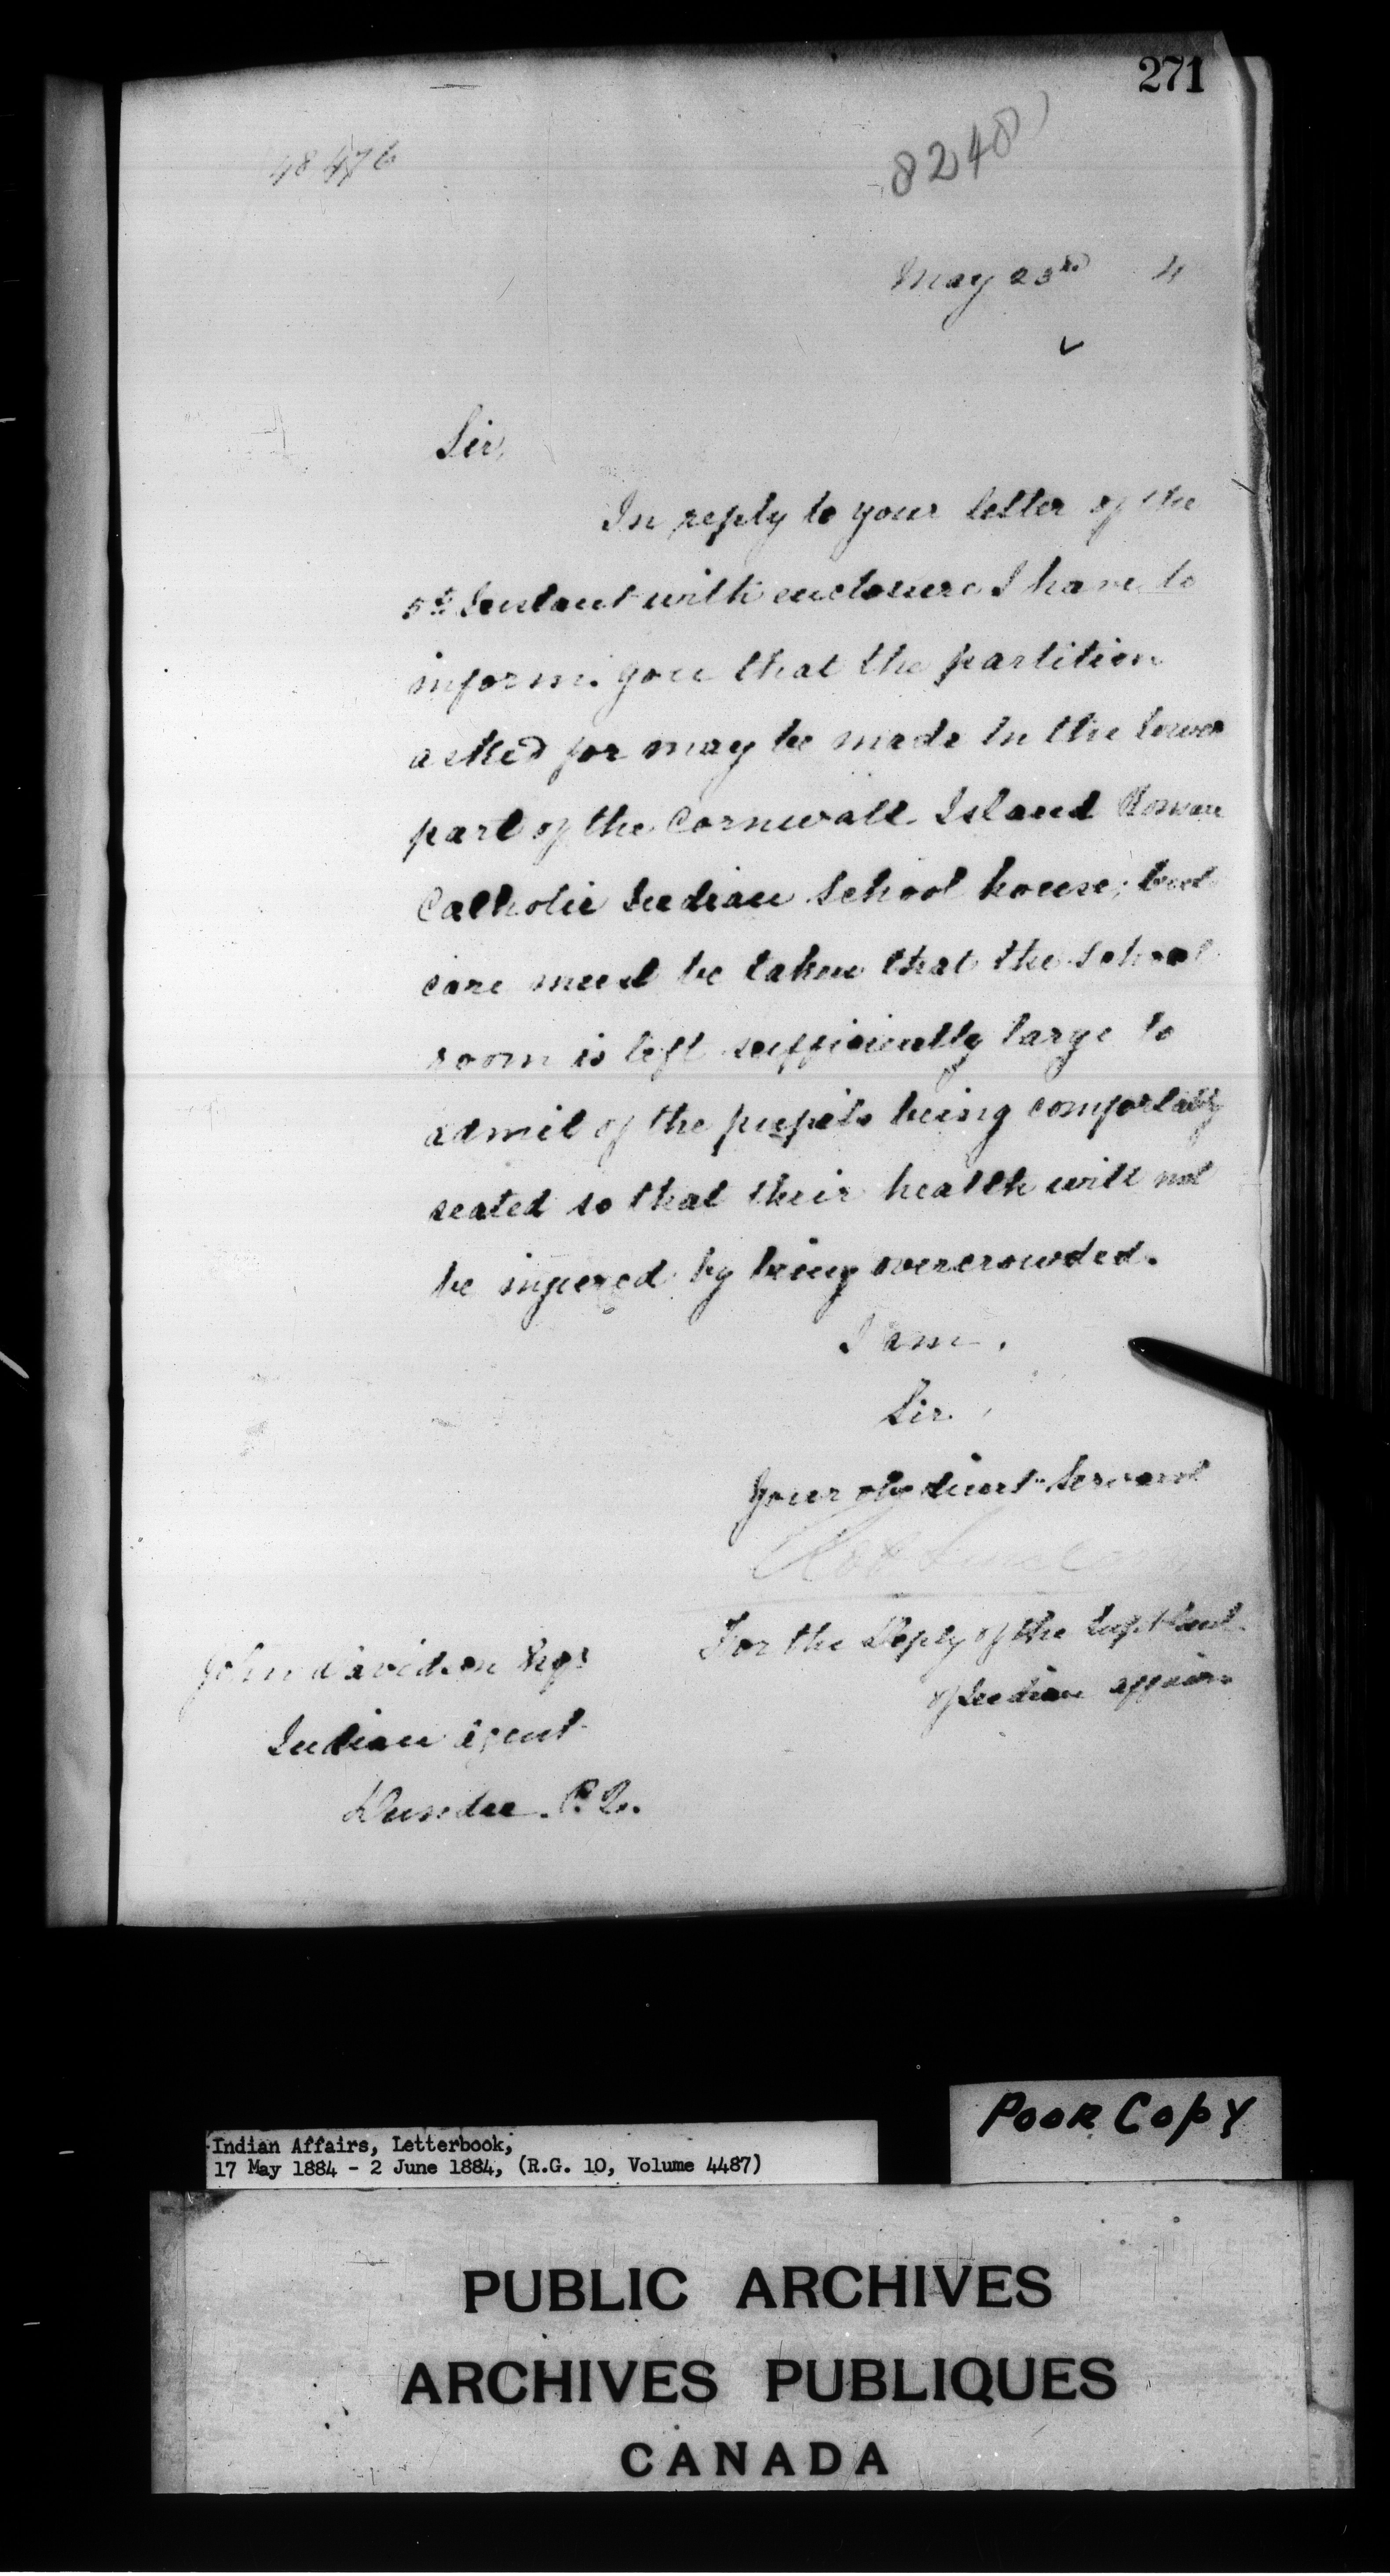 271
8248
May 23rd 4
Sir,
In reply to your letter of the
5th Instant with enclosure I have to
inform you that the partition
asked for may be made in the lower
part of the Cornwall Island Roman
Catholic Indian School house; but
care must be taken that the School
room is left sufficiently large to
admit of the pupils being comfortably
seated so that their health will not
be injured by being overcrowded.
I am,
Sir,
Your obedient Servant
For the Depty of the Supt Genl
of Indian affairs
John Davidson Esqr
Indian Agent
Dundee. P.Q.
Poor Copy
Indian Affairs, Letterbook,
17 May 1884 - 2 June 1884, (R.G. 10, Volume 4487)
PUBLIC ARCHIVES
ARCHIVES PUBLIQUES
CANADA